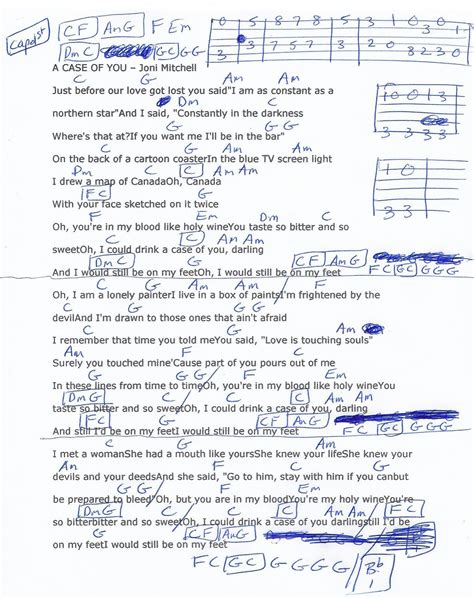 capo 1st
C F Am G F Em
Dm C G C G G
0 5 8 7 8 5 3 1 0 0 1
3 0
3 7 5 7 3 2 0 8 2 3 0
A CASE OF YOU – Joni Mitchell
C G Am Am
Just before our love got lost you said"I am as constant as a
Dm C
northern star"And I said, "Constantly in the darkness
C G G G
Where's that at?If you want me I'll be in the bar"
C G Am Am
On the back of a cartoon coasterIn the blue TV screen light
Dm C C Am Am
I drew a map of CanadaOh, Canada
F C
With your face sketched on it twice
F Em Dm C
Oh, you're in my blood like holy wineYou taste so bitter and so
G C Am Am
sweetOh, I could drink a case of you, darling
G C F Am G
And I would still be on my feetOh, I would still be on my feet
F C G C G G G
C G Am F
Oh, I am a lonely painterI live in a box of paintsI'm frightened by the
C G
devilAnd I'm drawn to those ones that ain't afraid
C G Am
I remember that time you told meYou said, "Love is touching souls"
Am F C
Surely you touched mine'Cause part of you pours out of me
G G G F Em
In these lines from time to timeOh, you're in my blood like holy wineYou
Dm G G C Am Am
taste so bitter and so sweetOh, I could drink a case of you, darling
F C G C F Am G
And still I'd be on my feetI would still be on my feet
F C G C G G G
C G Am
I met a womanShe had a mouth like yoursShe knew your lifeShe knew your
Am F C
devils and your deedsAnd she said, "Go to him, stay with him if you canbut
G G G F Em
be prepared to bleed"Oh, but you are in my bloodYou're my holy wineYou're
Dm G G C Am Am F C
so bitterbitter and so sweetOh, I could drink a case of you darlingstill I'd be
G C F Am G
on my feetI would still be on my feet
F C G C G G G G Bb
1